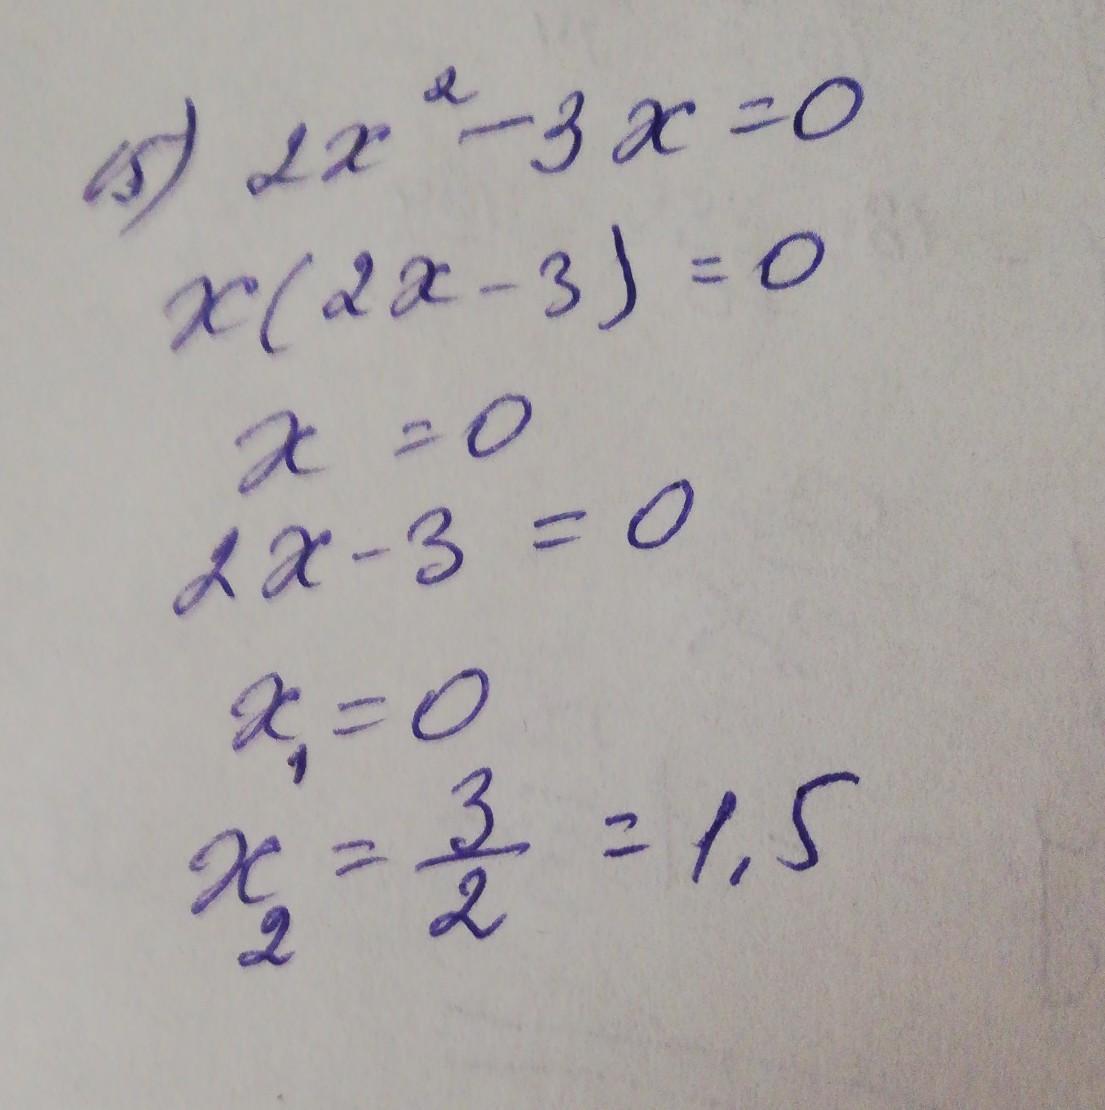 15) 2x² - 3x = 0
x(2x - 3) = 0
x = 0
2x - 3 = 0
x₁ = 0
x₂ = 3/2 = 1,5